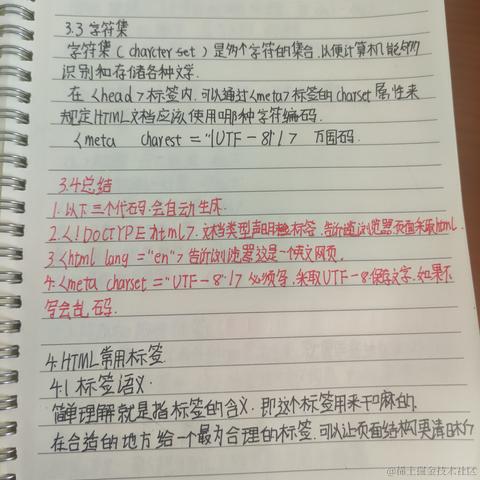 3.3 字符集
字符集(charcter set)是多个字符的集合.以便计算机能够
识别和存储各种文字.
在<head>标签内.可以通过<meta>标签的charset属性来
规定HTML文档应该使用哪种字符编码.
<meta charest="UTF-8"/> 万国码.
3.4 总结
1.以下三个代码.会自动生成.
2.<!DOCTYPE html>.文档类型声明标签.告诉浏览器页面采取html.
3.<html lang="en">告诉浏览器这是一个英文网页.
4.<meta charset="UTF-8"/>必须写,采取UTF-8保存文字.如果不
写会乱码.
4.HTML常用标签
4.1 标签语义.
简单理解就是指标签的含义.即这个标签用来干嘛的.
在合适的地方给一个最为合理的标签.可以让页面结构更清晰
@稀土掘金技术社区